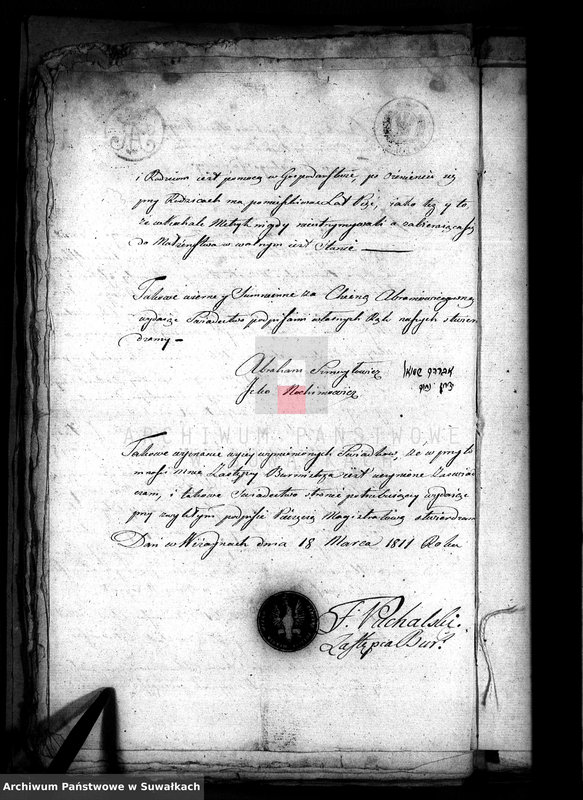 i Rodzicom iest pomocą w Gospodarstwie, po ożenieniu się
przy Rodzicach na pomieszkanie Lat Pięć, iako też y to
że w Kahale Metryk nigdy nieutrzymywali a zabierającą się
do Małżeństwa w wolnym iest Stanie
Takowe wierne y Summienne za Abramowiczową
wydaiąc Świadectwo podpisami własnych Rąk naszych stwier
dzamy
Abraham Szmuylowicz אברהם שמואל
Jcko Nochimowicz
ARCHIWUM PAŃSTWOWE
Takowe wyznanie wyżey wspomnionych Świadków, że w przyto
mności mnie Zastępcy Burmistrza iest uczynione Zaświad
czam, i takowe Świadectwo stronie potrzebuiącey wydaiąc
przy zwykłym podpisie Pieczęcią Magistratową stwierdzam
Dan w Wiżaynach dnia 18 Marca 1811 Roku
F. Pachalski
Zastępca Bur:
Archiwum Państwowe w Suwałkach